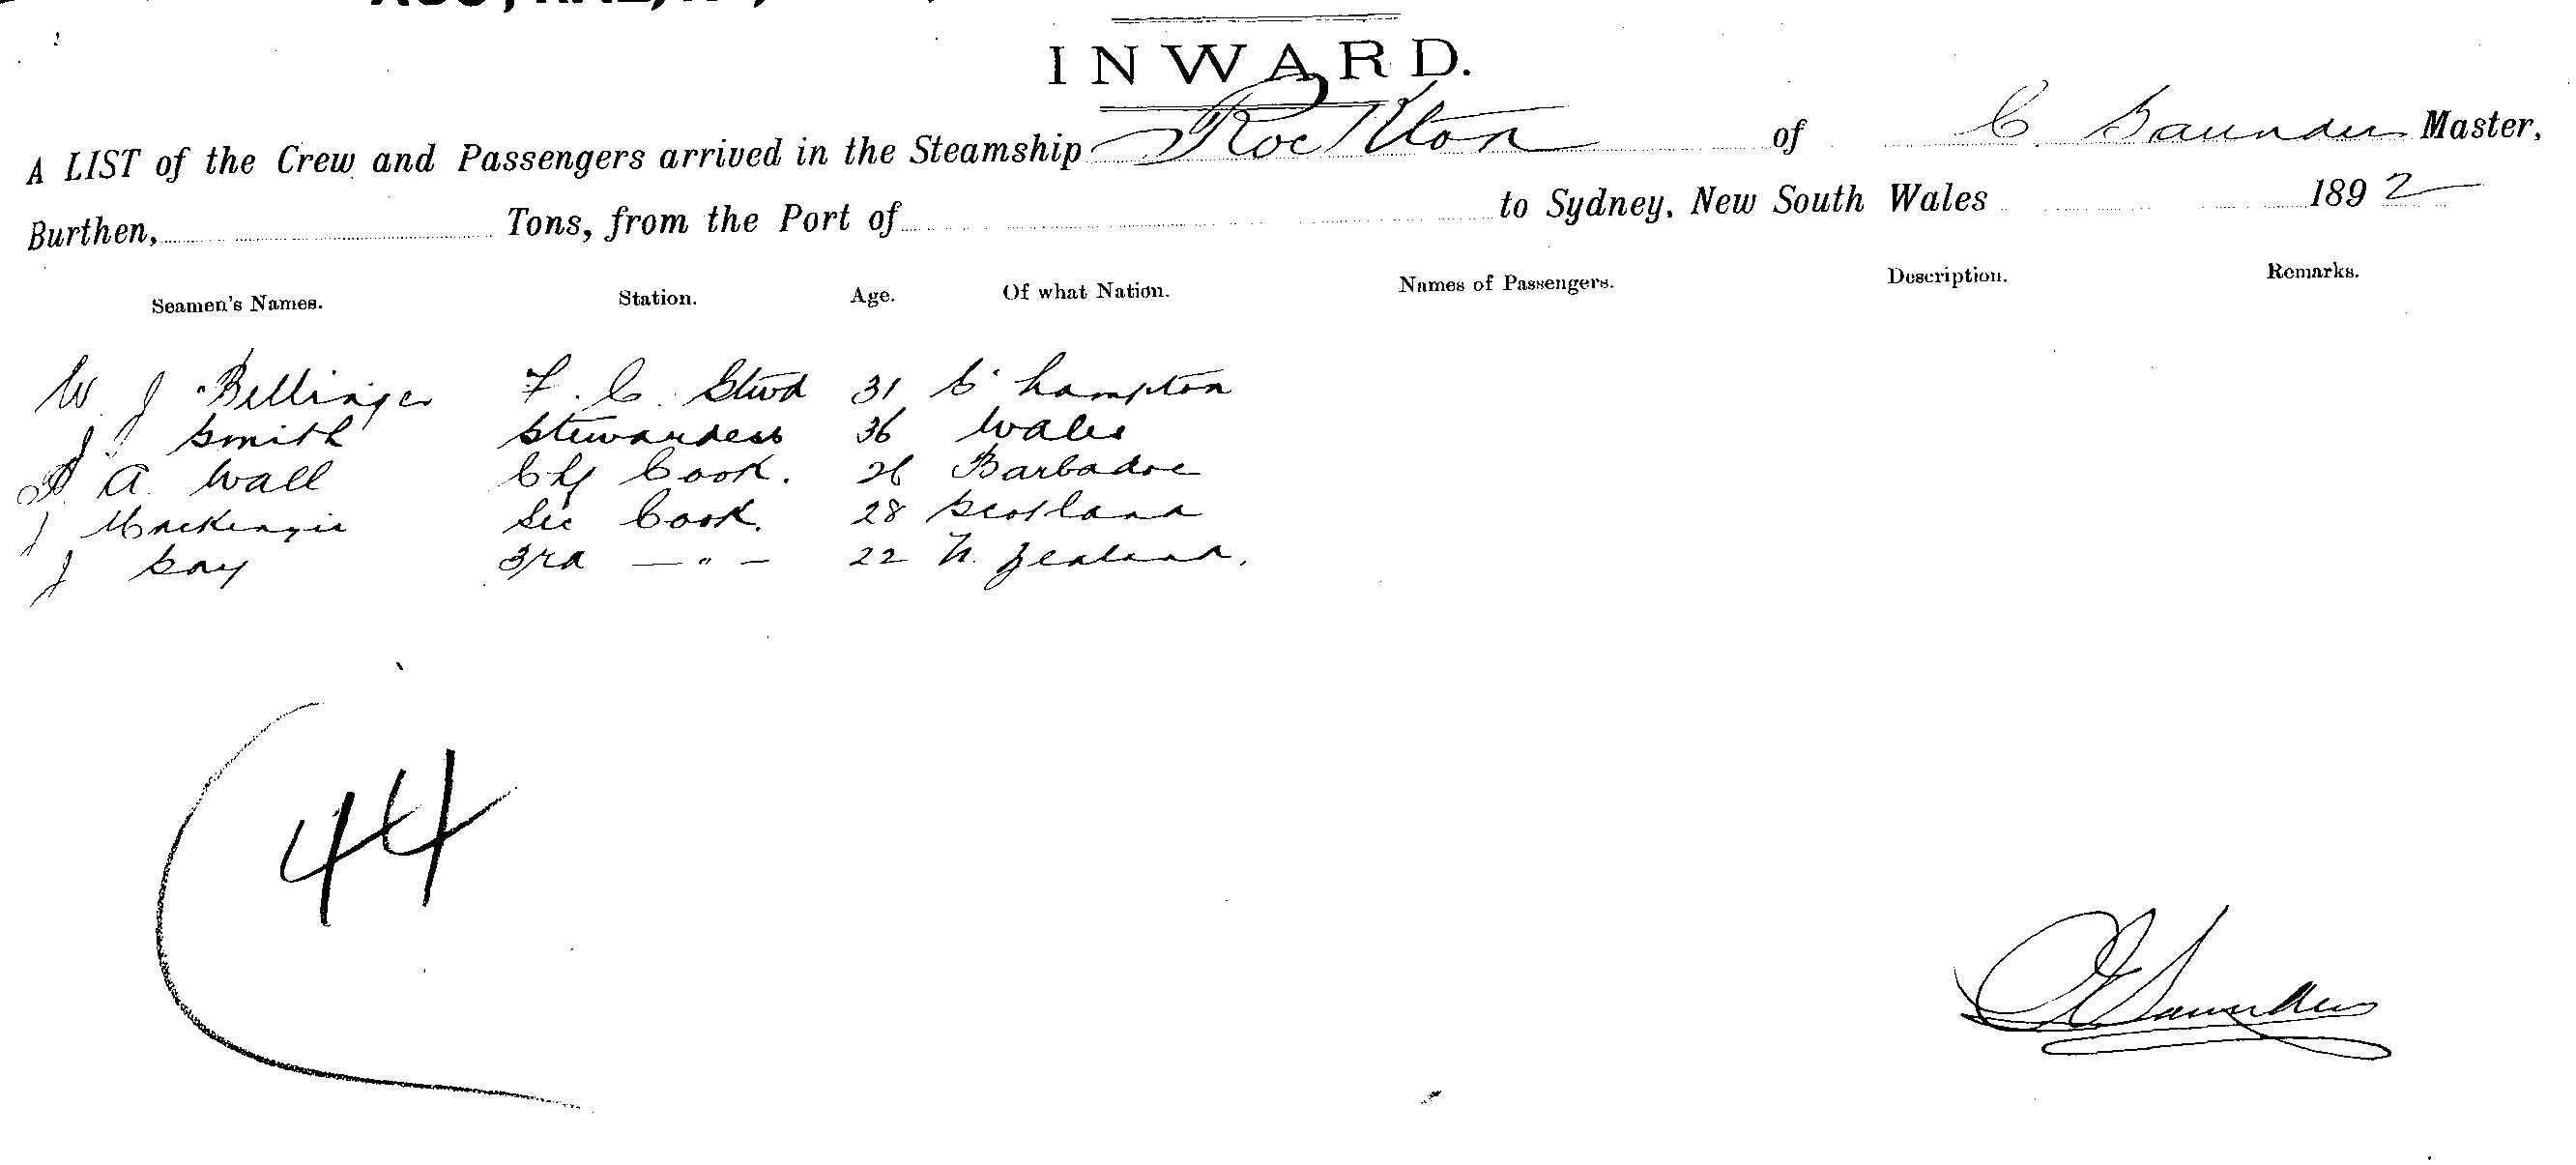 INWARD.
A LIST of the Crew and Passengers arrived in the Steamship Rockton of C. Saunders Master,
Burthen, Tons, from the Port of to Sydney, New South Wales 1892
Seamen's Names. Station. Age. Of what Nation. Names of Passengers. Description. Remarks.
W J Bellinger F. C. Stwd 31 S'hampton
J Smith Stewardess 36 Wales
A. Wall Chf Cook. 26 Barbadoe
J Mackenzie Sec Cook. 28 Scotland
J Say 3rd — " — 22 N. Zealand.
44
C Saunders